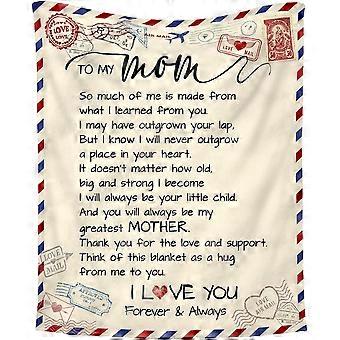 LOVE
LOVE
AIR MAIL
LOVE MAIL
TO MY mom
So much of me is made from
what I learned from you.
I may have outgrown your lap,
But I know I will never outgrow
a place in your heart.
It doesn't matter how old,
big and strong I become
I will always be your little child.
And you will always be my
greatest MOTHER.
Thank you for the love and support.
Think of this blanket as a hug
from me to you.
I LOVE YOU
Forever & Always
I LOVE
MAIL
LOVE
AIR MAIL